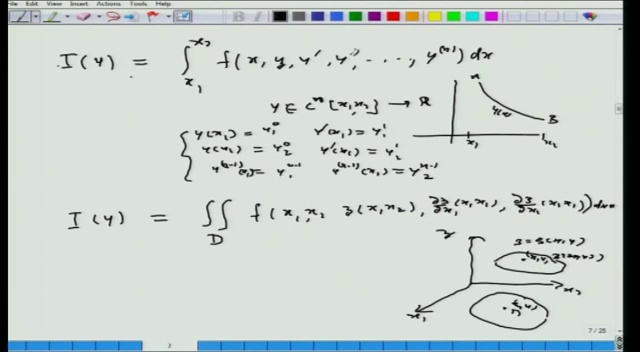 File Edit View Insert Actions Tools Help
I(y) = ∫_{x₁}^{x₂} f(x, y, y', y'', ...., y^{(n)}) dx
y ∈ C^n [x₁, x₂] → R
y(x₁) = y₁^0 y'(x₁) = y₁'
y(x₂) = y₂^0 y'(x₂) = y₂'
y^{(n-1)}(x₁) = y₁^{n-1} y^{(n-1)}(x₂) = y₂^{n-1}
A
y(x)
B
x₁ x₂
I(y) = ∬_D f(x₁, x₂ z(x₁, x₂), ∂z/∂x₁ (x₁ x₂), ∂z/∂x₂ (x₁ x₂))
z
x₂
x₁
D
7 / 25
7